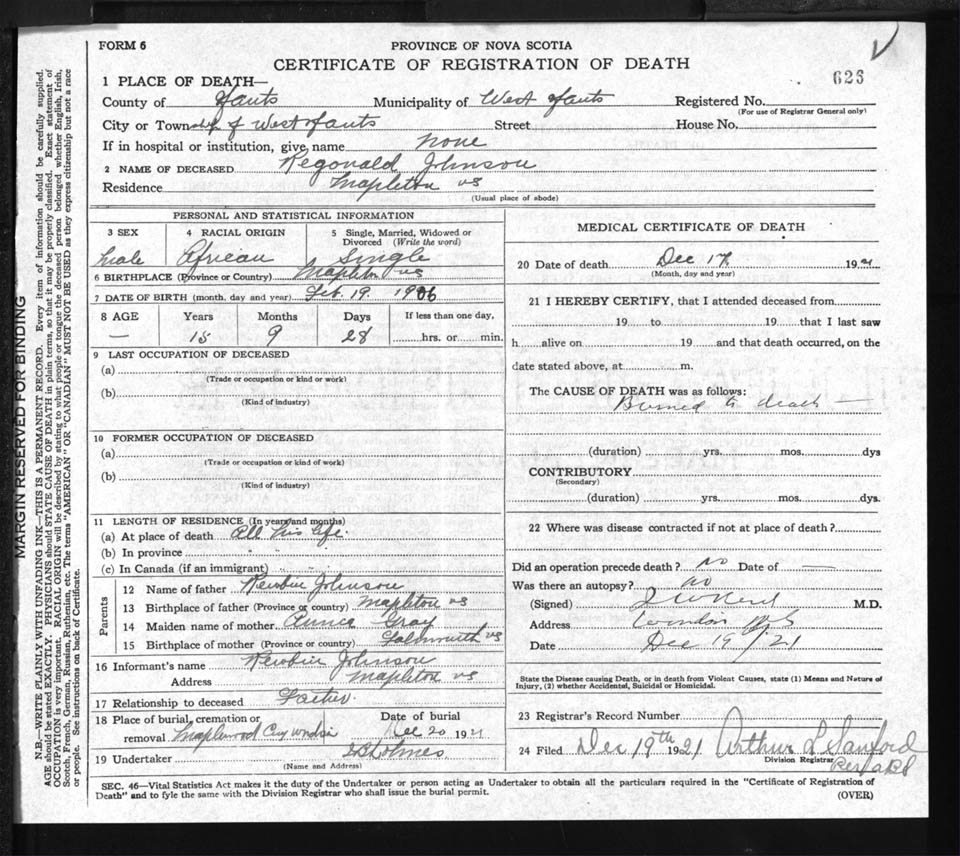 FORM 6
PROVINCE OF NOVA SCOTIA
CERTIFICATE OF REGISTRATION OF DEATH
626
1 PLACE OF DEATH—
County of Hants Municipality of West Hants Registered No.
(For use of Registrar General only)
City or Township of West Hants Street House No.
If in hospital or institution, give name none
2 NAME OF DECEASED Regonald Johnson
Residence Mapleton NS
(Usual place of abode)
PERSONAL AND STATISTICAL INFORMATION
3 SEX 4 RACIAL ORIGIN 5 Single, Married, Widowed or Divorced (Write the word)
Male African Single
6 BIRTHPLACE (Province or Country) Mapleton NS
7 DATE OF BIRTH (month, day and year) Feb. 19. 1906
8 AGE Years Months Days If less than one day,
— 15 9 28 hrs. or min.
9 LAST OCCUPATION OF DECEASED
(a)
(Trade or occupation or kind or work)
(b)
(Kind of industry)
10 FORMER OCCUPATION OF DECEASED
(a)
(Trade or occupation or kind of work)
(b)
(Kind of industry)
11 LENGTH OF RESIDENCE (In years and months)
(a) At place of death all his life
(b) In province " "
(c) In Canada (if an immigrant) " "
Parents
12 Name of father Johnson
13 Birthplace of father (Province or country) Mapleton NS
14 Maiden name of mother Gray
15 Birthplace of mother (Province or country) Falmouth NS
16 Informant's name Johnson
Address Mapleton NS
17 Relationship to deceased Father
18 Place of burial, cremation or removal Maplewood Cey Windsor Date of burial Dec 20 1921
19 Undertaker Holmes
(Name and Address)
MEDICAL CERTIFICATE OF DEATH
20 Date of death Dec 17 1921
(Month, day and year)
21 I HEREBY CERTIFY, that I attended deceased from
19 to 19 that I last saw
h alive on 19 and that death occurred, on the
date stated above, at m.
The CAUSE OF DEATH was as follows:
Burned to death —
(duration) yrs. mos. dys
CONTRIBUTORY
(Secondary)
(duration) yrs. mos. dys.
22 Where was disease contracted if not at place of death?
Did an operation precede death? no Date of —
Was there an autopsy? no
(Signed) M.D.
Address Windsor NS
Date Dec 19/21
State the Disease causing Death, or in death from Violent Causes, state (1) Means and Nature of
Injury, (2) whether Accidental, Suicidal or Homicidal.
23 Registrar's Record Number
24 Filed Dec 19th 1921 Arthur L Sanford
Division Registrar
SEC. 46—Vital Statistics Act makes it the duty of the Undertaker or person acting as Undertaker to obtain all the particulars required in the "Certificate of Registration of
Death" and to fyle the same with the Division Registrar who shall issue the burial permit.
(OVER)
MARGIN RESERVED FOR BINDING
N.B.—WRITE PLAINLY WITH UNFADING INK—THIS IS A PERMANENT RECORD. Every item of information should be carefully supplied.
AGE should be stated EXACTLY. PHYSICIANS should STATE CAUSE OF DEATH in plain terms, so that it may be properly classified. Exact statement of
OCCUPATION is very important. RACIAL ORIGIN will be described by stating to what people or tongue the deceased person belonged, whether English, Irish,
Scotch, French, German, Russian, Ruthenian, etc. The terms "AMERICAN" OR "CANADIAN" MUST NOT BE USED as they express citizenship but not a race
or people. See instructions on back of Certificate.